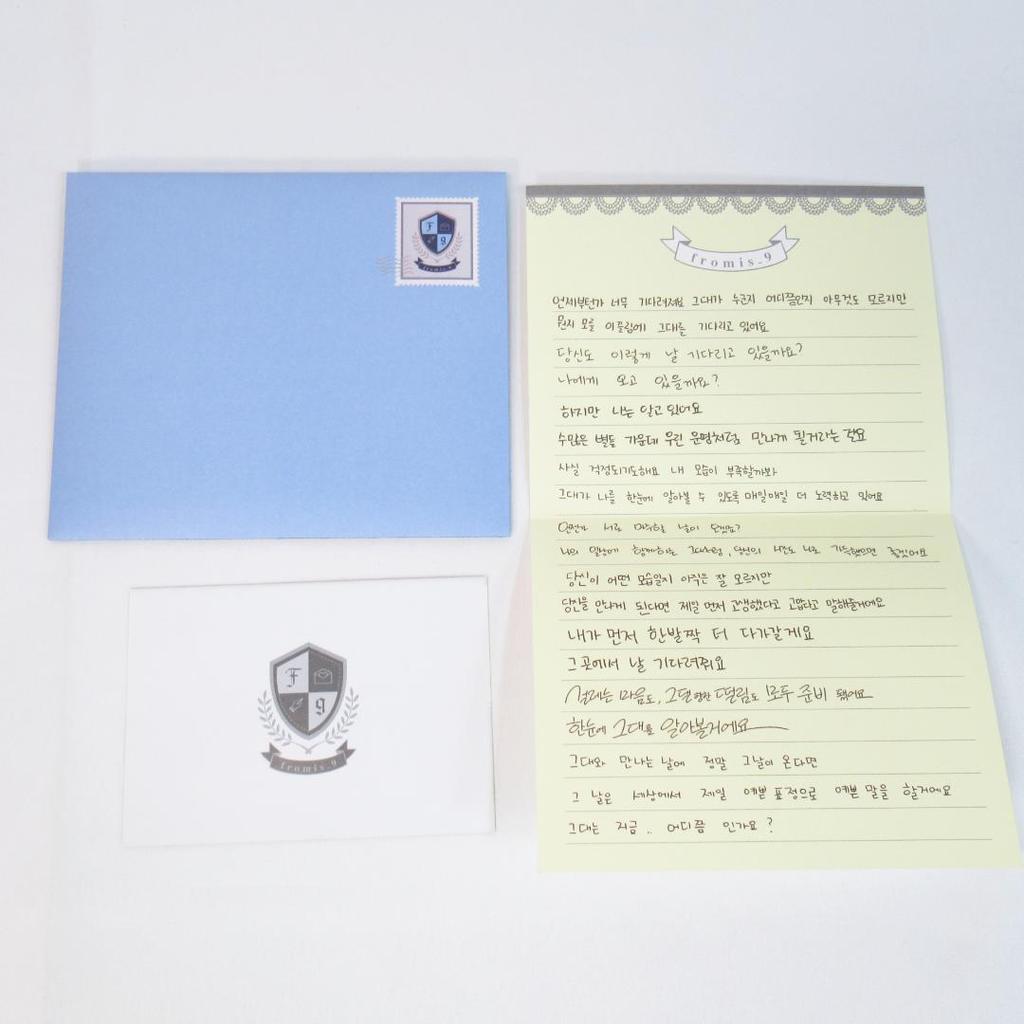 F
9
fromis_9
F
9
fromis_9
fromis_9
언제부턴가 너무 기다려져요 그대가 누군지 어디쯤인지 아무것도 모르지만
뭔지 모를 이끌림에 그대를 기다리고 있어요
당신도 이렇게 날 기다리고 있을까요?
나에게 오고 있을까요?
하지만 나는 알고 있어요
수많은 별들 가운데 우린 운명처럼 만나게 될거라는 걸요
사실 걱정되기도해요 내 모습이 부족할까봐
그대가 나를 한눈에 알아볼 수 있도록 매일매일 더 노력하고 있어요
언젠가 서로 마주할 날이 오겠죠?
나의 일상에 함께하는 그대처럼, 당신의 시간도 나로 가득했으면 좋겠어요
당신이 어떤 모습일지 아직은 잘 모르지만
당신을 만나게 된다면 제일 먼저 고생했다고 고맙다고 말해줄거에요
내가 먼저 한발짝 더 다가갈게요
그곳에서 날 기다려줘요
설레는 마음도, 그댈 향한 떨림도 모두 준비 됐어요
한눈에 그대를 알아볼거에요
그대와 만나는 날에 정말 그날이 온다면
그 날은 세상에서 제일 예쁜 표정으로 예쁜 말을 할거에요
그대는 지금.. 어디쯤 인가요?